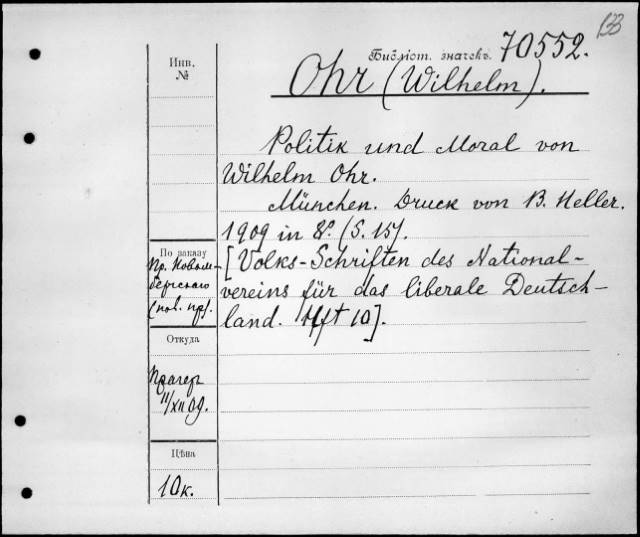 133
Библіот. значекъ. 70552.
Инв.
№
Ohr (Wilhelm).
Politik und Moral von
Wilhelm Ohr.
München. Druck von B. Heller.
1909 in 8º. (S. 15).
[Volks-Schriften des National-
vereins für das liberale Deutsch-
land. Hft 10].
По заказу
Пр. Новом-
бергскаго
(нов. пр.).
Откуда
Прагеръ
11/XII 09.
Цѣна
10к.